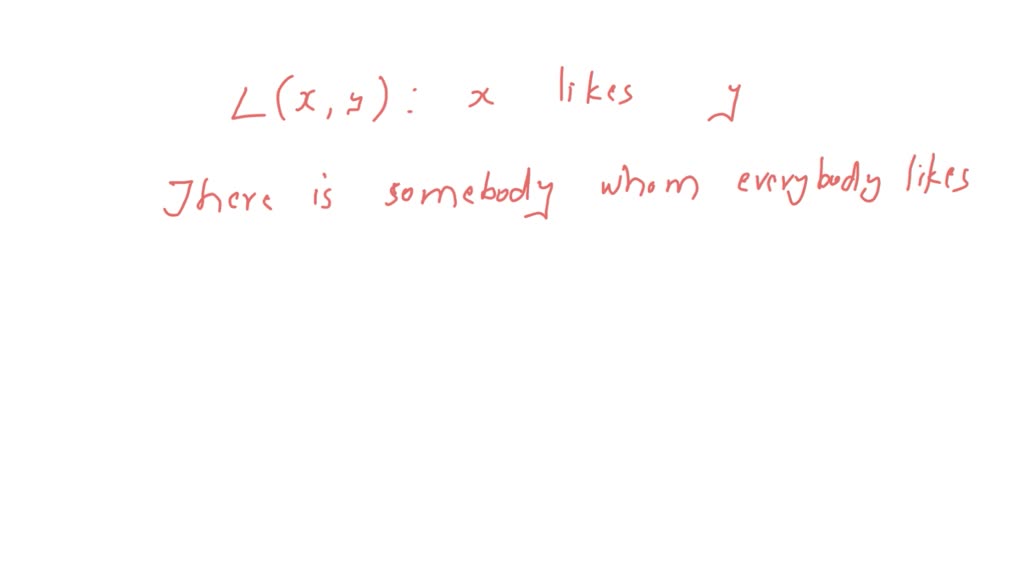 L(x,y): x likes y
There is somebody whom everybody likes